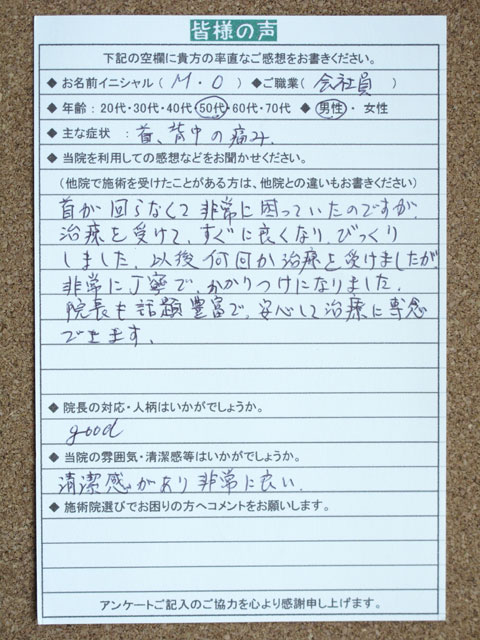 皆様の声
下記の空欄に貴方の率直なご感想をお書きください。
◆ お名前イニシャル（ M・O ）◆ご職業（ 会社員 ）
◆ 年齢：20代・30代・40代・50代・60代・70代 ◆ 男性・ 女性
◆ 主な症状 ： 首、背中の痛み.
◆ 当院を利用しての感想などをお聞かせください。
（他院で施術を受けたことがある方は、他院との違いもお書きください）
首が回らなくて非常に困っていたのですが、
治療を受けて、すぐに良くなり、びっくり
しました。以後何回か治療を受けましたが、
非常に丁寧で、かかりつけになりました。
院長も話題豊富で、安心して治療に専念
できます。
◆ 院長の対応・人柄はいかがでしょうか。
good
◆ 当院の雰囲気・清潔感等はいかがでしょうか。
清潔感があり非常に良い.
◆ 施術院選びでお困りの方へコメントをお願いします。
アンケートご記入のご協力を心より感謝申し上げます。